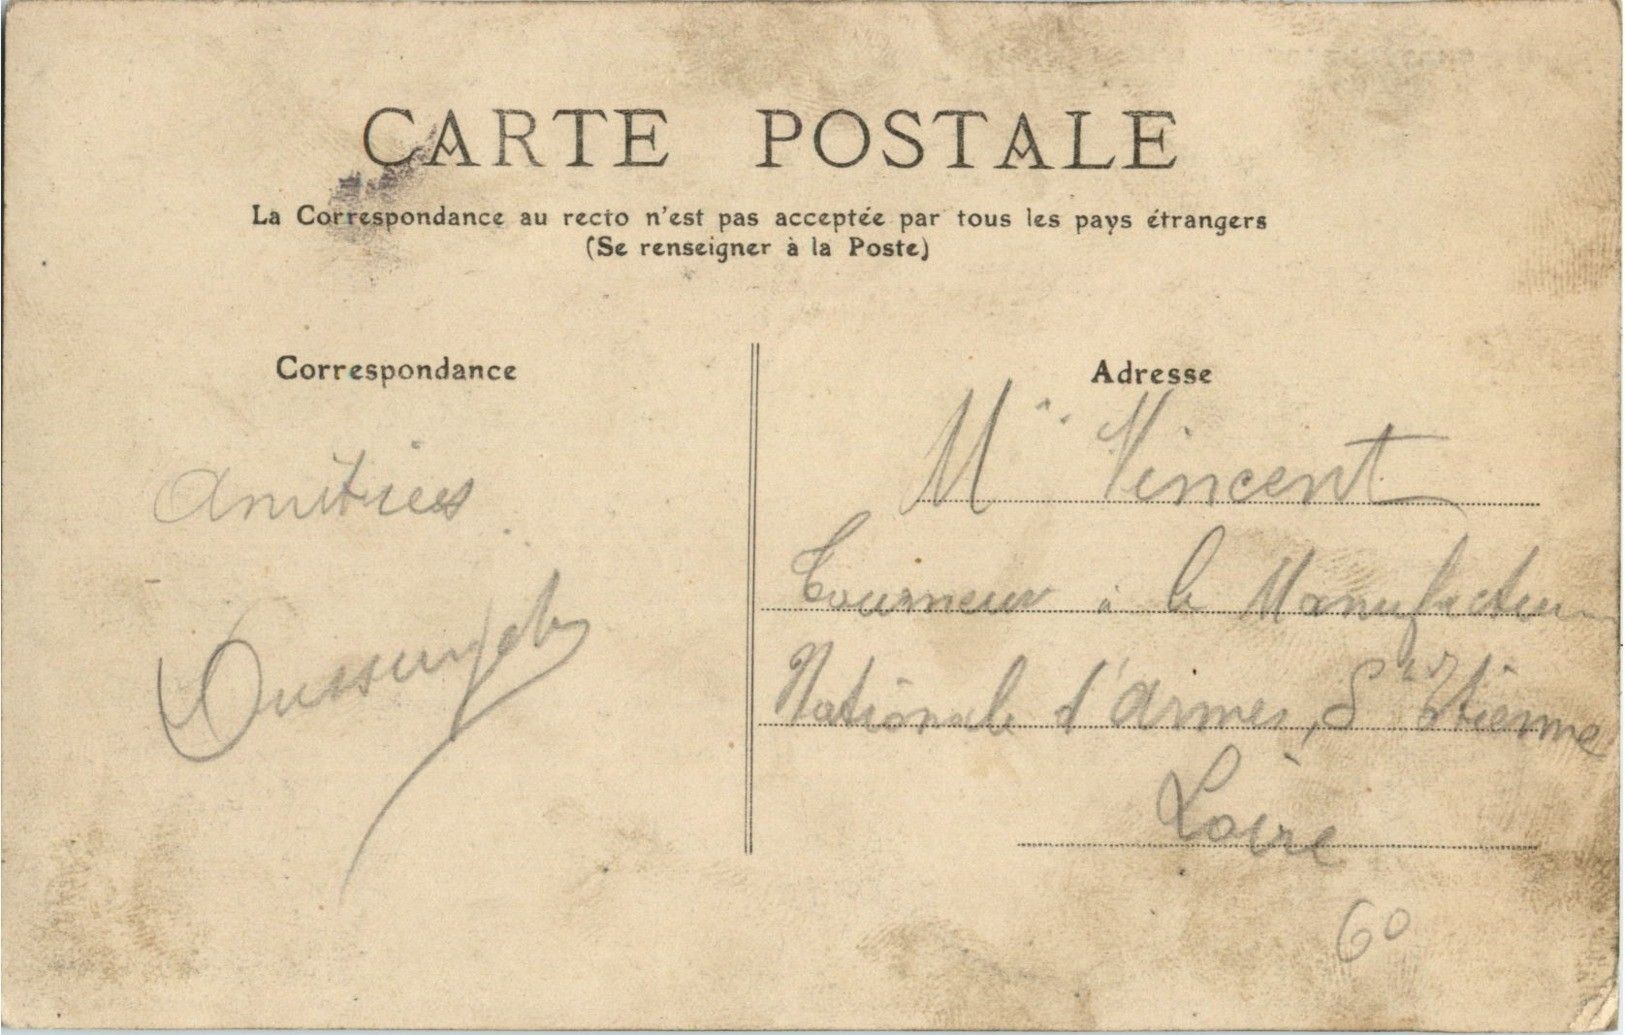 CARTE POSTALE
La Correspondance au recto n'est pas acceptée par tous les pays étrangers
(Se renseigner à la Poste)
Correspondance
Amitiées
Adresse
M Vincent
Tourneur à la Manufacture
Nationale d'Armes, St Etienne
Loire
60